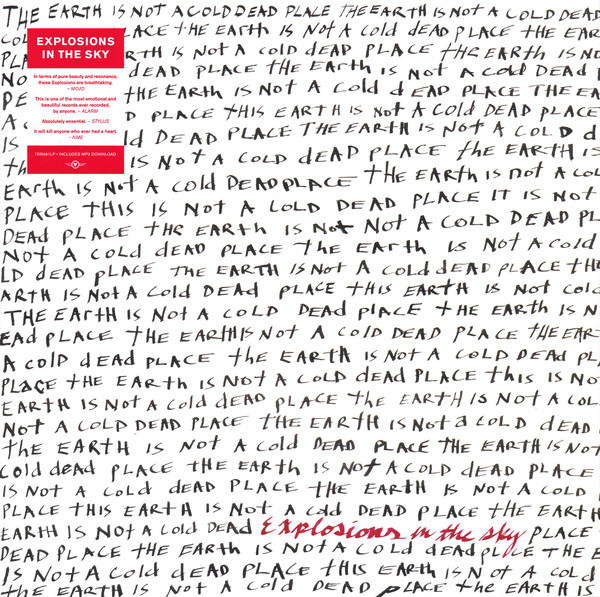 THE EARTH IS NOT A COLD DEAD PLACE THE EARTH IS NOT A COLD DEAD
EXPLOSIONS
IN THE SKY
In terms of pure beauty and resonance,
these Explosions are breathtaking.
– MOJO
This is one of the most emotional and
beautiful records ever recorded,
by anyone. – ALARM
Absolutely essential. – STYLUS
It will kill anyone who ever had a heart.
– NME
INCLUDES MP3 DOWNLOAD
COL ACE THE EARTH IS NOT A COLD DEAD PLACE THE EAR
IS NOT A COLD DEAD PLACE THE EARTH IS NO
NO DEAD PLACE THE EARTH IS NOT A COLD DEAD
DE IS NOT A COLD DEAD PLACE THE EA
A C D PLACE THIS EARTH IS NOT A COLD
IS LD DEAD PLACE THE EARTH IS NOT A COLD D
th IS NOT A COLD DEAD PLACE THE EARTH IS
EARTH IS NOT A COLD DEAD PLACE THE EARTH IS NOT A COL
PLACE THIS IS NOT A COLD DEAD PLACE IT IS NOT
DEAD PLACE THE EARTH IS NOT NOT A COLD DEAD PL
NOT A COLD DEAD PLACE THE EARTH IS NOT A COLD
LD DEAD PLACE THE EARTH IS NOT A COLD DEAD PLACE TH
ARTH IS NOT A COLD DEAD PLACE THIS EARTH IS NOT COLD
THE EARTH IS NOT A COLD DEAD PLACE THE EARTH IS N
EAD PLACE THE EARTH IS NOT A COLD DEAD PLACE THE EAR
A COLD DEAD PLACE THE EARTH IS NOT A COLD DEAD PL
PLACE THE EARTH IS NOT A COLD DEAD PLACE THIS IS NO
EARTH IS NOT A COLD DEAD PLACE THE EARTH IS NOT A COL
NOT A COLD DEAD PLACE THE EARTH IS NOT A COLD DEAD
THE EARTH IS NOT A COLD DEAD PLACE THE EARTH IS NOT
COLD DEAD PLACE THE EARTH IS NOT A COLD DEAD PLACE
IS NOT A COLD DEAD PLACE THE EARTH IS NOT A COLD
PLACE THIS EARTH IS NOT A COLD DEAD PLACE THE EARTH
EARTH IS NOT A COLD DEAD Explosions in the sky PLACE
DEAD PLACE THE EARTH IS NOT A COLD DEAD PLACE THE E
IS NOT A COLD DEAD PLACE THIS EARTH IS NOT A COLD
THE EARTH IS NOT A COLD DEAD PLACE THE EARTH IS